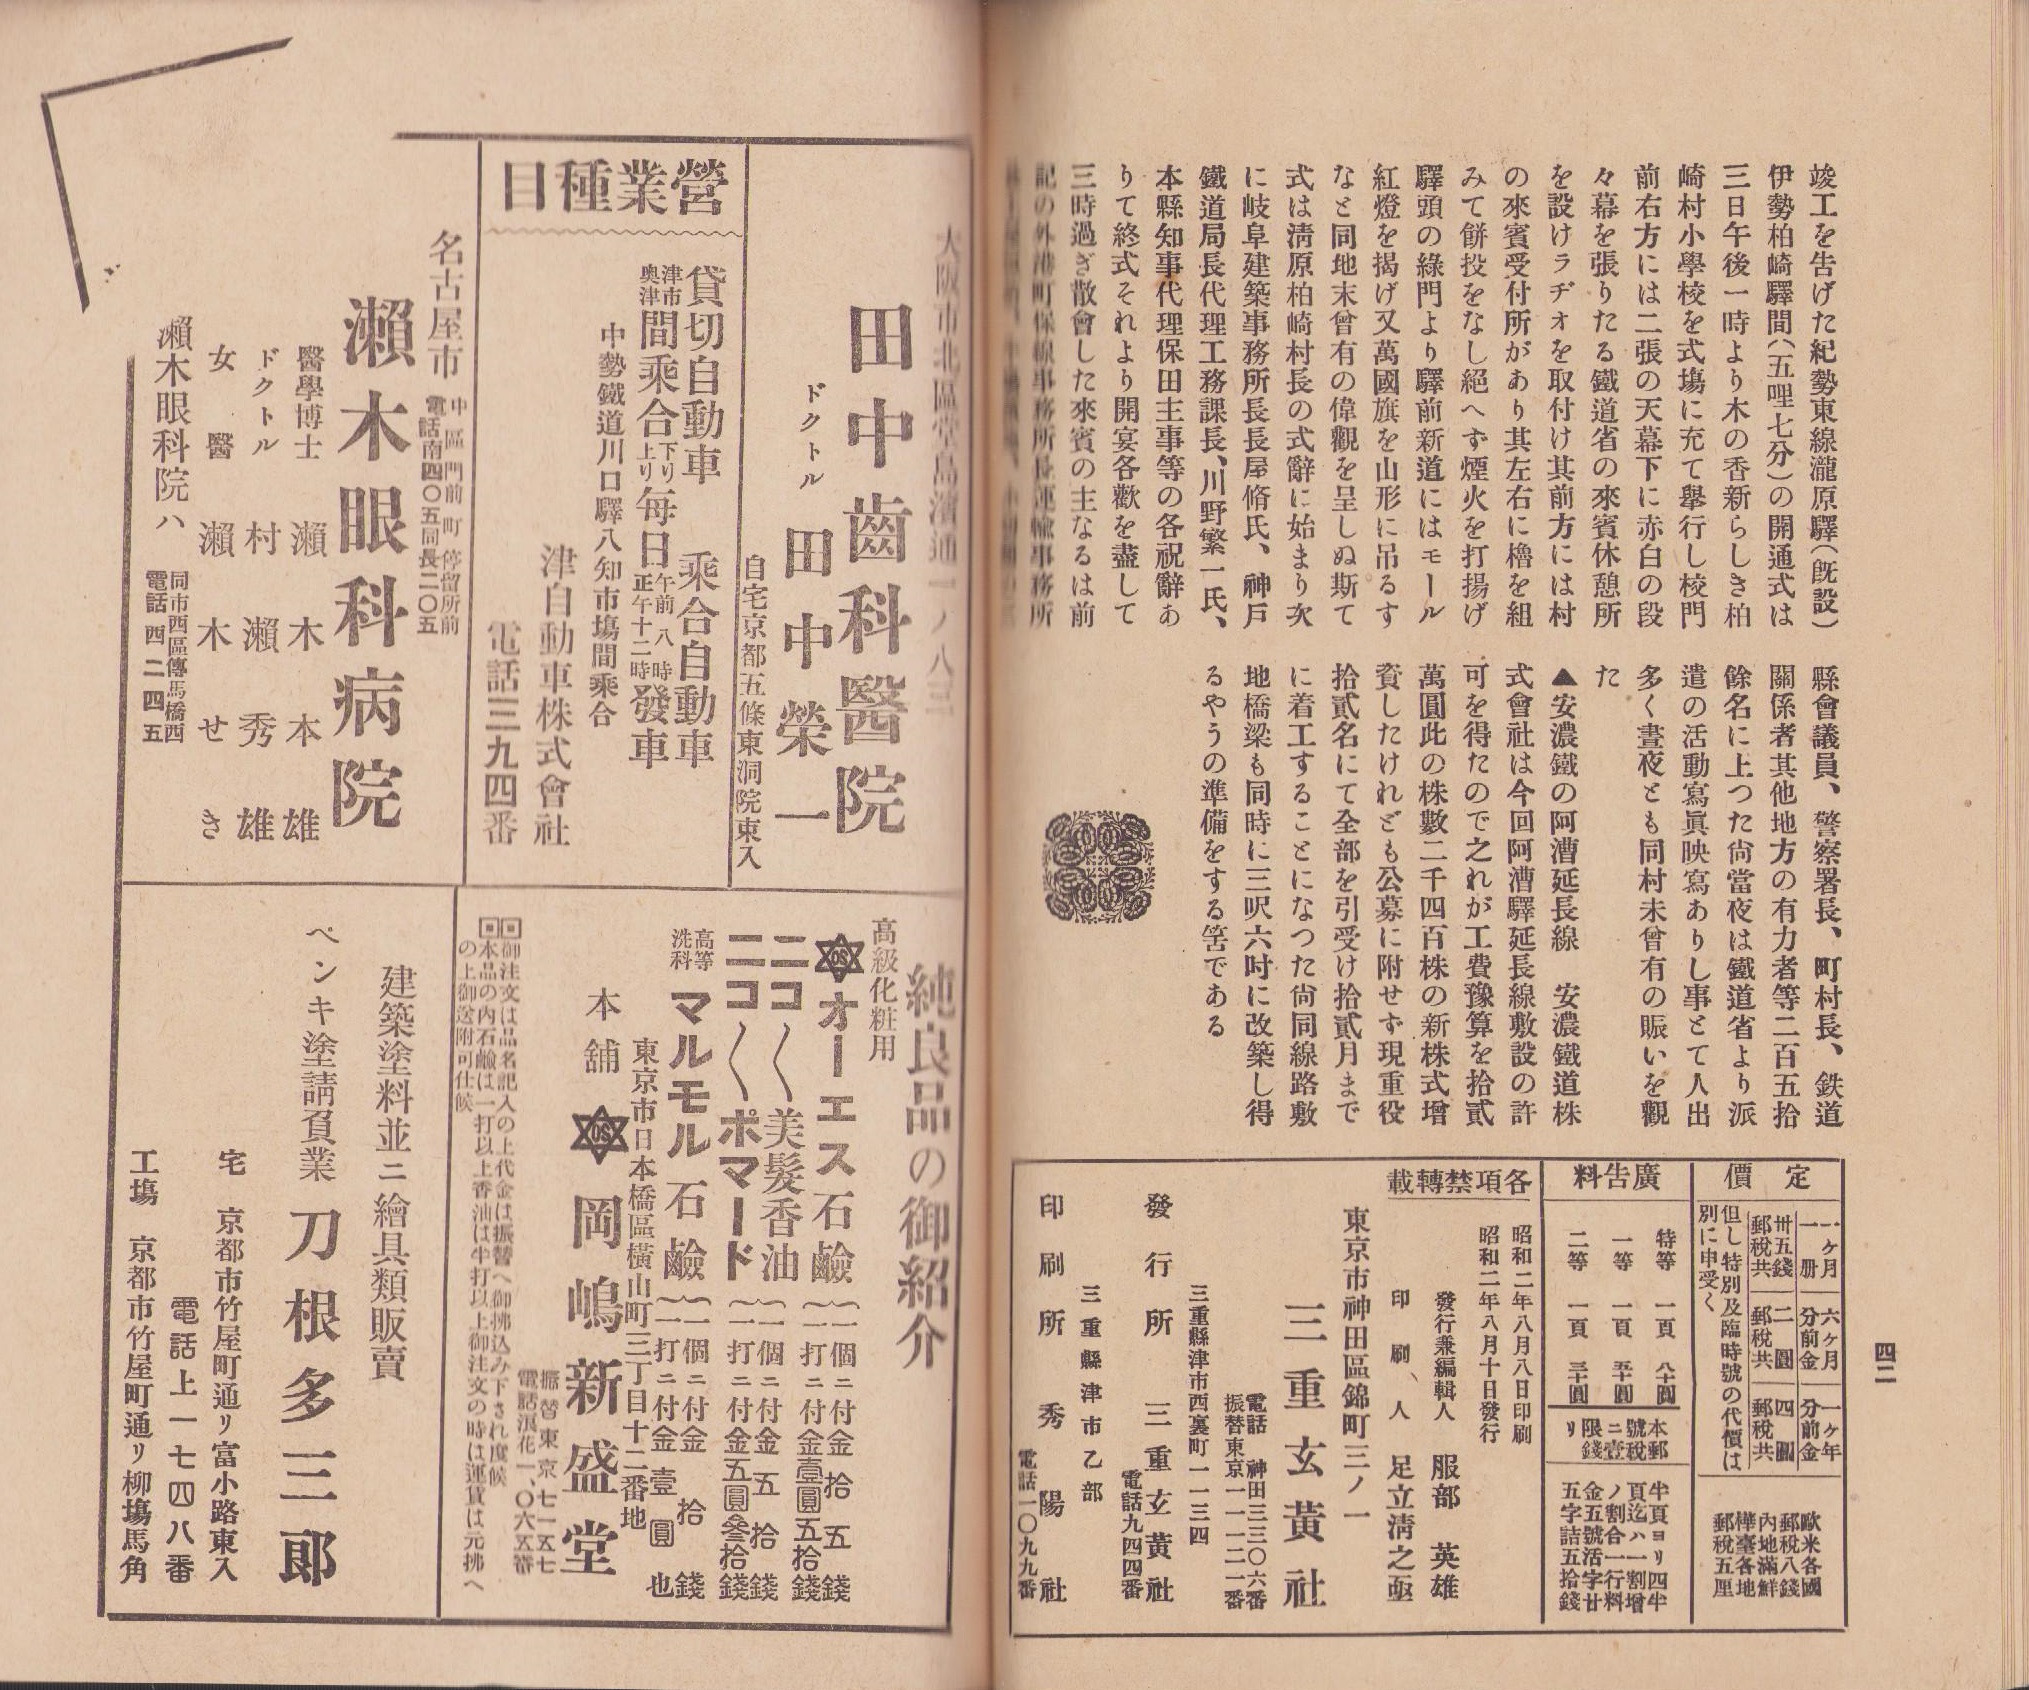 竣工を吿げた紀勢東線瀧原驛(旣設)
伊勢柏崎驛間(五哩七分)の開通式は
三日午後一時より木の香新らしき柏
崎村小學校を式塲に充て擧行し校門
前右方には二張の天幕下に赤白の段
々幕を張りたる鐵道省の來賓休憩所
を設けラヂオを取付け其前方には村
の來賓受付所があり其左右に櫓を組
みて餠投をなし絕へず煙火を打揚げ
驛頭の綠門より驛前新道にはモール
紅燈を揭げ又萬國旗を山形に吊るす
なと同地末曾有の偉觀を呈しぬ斯て
式は淸原柏崎村長の式辭に始まり次
に岐阜建築事務所長長屋脩氏、神戸
鐵道局長代理工務課長、川野繁一氏、
本縣知事代理保田主事等の各祝辭あ
りて終式それより開宴各歡を盡して
三時過ぎ散會した來賓の主なるは前
記の外港町保線事務所長運輸事務所
縣會議員、警察署長、町村長、鉄道
關係者其他地方の有力者等二百五拾
餘名に上つた尙當夜は鐵道省より派
遣の活動寫眞映寫ありし事とて人出
多く晝夜とも同村未曾有の賑いを觀
た
▲安濃鐵の阿漕延長線 安濃鐵道株
式會社は今回阿漕驛延長線敷設の許
可を得たので之れが工費豫算を拾貳
萬圓此の株數二千四百株の新株式增
資したけれども公募に附せず現重役
拾貳名にて全部を引受け拾貳月まで
に着工することになつた尙同線路敷
地橋梁も同時に三呎六吋に改築し得
るやうの準備をする筈である
四二
定價
一ヶ月 六ヶ月 一ヶ年
一册 分前金 分前金
卅五錢 二圓 四圓
郵稅共 郵稅共 郵稅共
但し特別及臨時號の代價は
別に申受く
歐米各國
郵稅八錢
內地滿鮮
樺臺各地
郵稅五厘
廣吿料
特等 一頁 八十圓
一等 一頁 五十圓
二等 一頁 三十圓
本郵
號稅
ニ壹
限錢
リ
半頁ヨリ四半
頁迄ハ一割增
ノ割合一行料
金五號活字廿
五字詰五拾錢
各項禁轉載
昭和二年八月八日印刷
昭和二年八月十日發行
發行兼編輯人 服部英雄
印刷人 足立淸之亟
東京市神田區錦町三ノ一
三重玄黃社
電話神田三三〇六番
振替東京一一一二一番
三重縣津市西裏町一一三四
發行所 三重玄黃社
電話九四四番
三重縣津市乙部
印刷所 秀陽社
電話一〇九九番
大阪市北區堂島濱通一ノ八三
田中齒科醫院
ドクトル 田中榮一
自宅京都五條東洞院東入
營業種目
貸切自動車 乘合自動車
津市奥津間乘合下り上り每日午前八時正午十二時發車
中勢鐵道川口驛八知市塲間乘合
津自動車株式會社
電話三九四番
名古屋市
中區門前町停留所前
電話南四〇五同長二〇五
瀨木眼科病院
醫學博士 瀨木本雄
ドクトル 村瀨秀雄
女醫 瀨木せき
瀨木眼科院ハ
同市西區傳馬橋西
電話四二四五
純良品の御紹介
高級化粧用
オーエス石鹼
一個ニ付金拾五錢
一打ニ付金壹圓五拾錢
ニコ〱美髮香油
ニコ〱ポマード
一個ニ付金五拾錢
一打ニ付金五圓叄拾錢
高等洗料 マルモル石鹼
一個ニ付金拾錢
一打ニ付金壹圓也
東京市日本橋區橫山町三丁目十二番地
本舖 OS 岡嶋新盛堂
振替東京七一五七
電話浪花一、〇六五番
▣御注文は品名記入の上代金は振替へ御拂込み下され度候
▣本品の內石鹼は一打以上香油は半打以上御注文の時は運賃は元拂へ
の上御送附可仕候
建築塗料並ニ繪具類販賣
ペンキ塗請負業 刀根多三郎
宅 京都市竹屋町通リ富小路東入
電話上一七四八番
工塲 京都市竹屋町通リ柳塲馬角